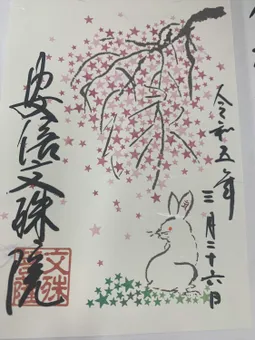 令和五年
三月二十六日
安倍文殊院
文殊